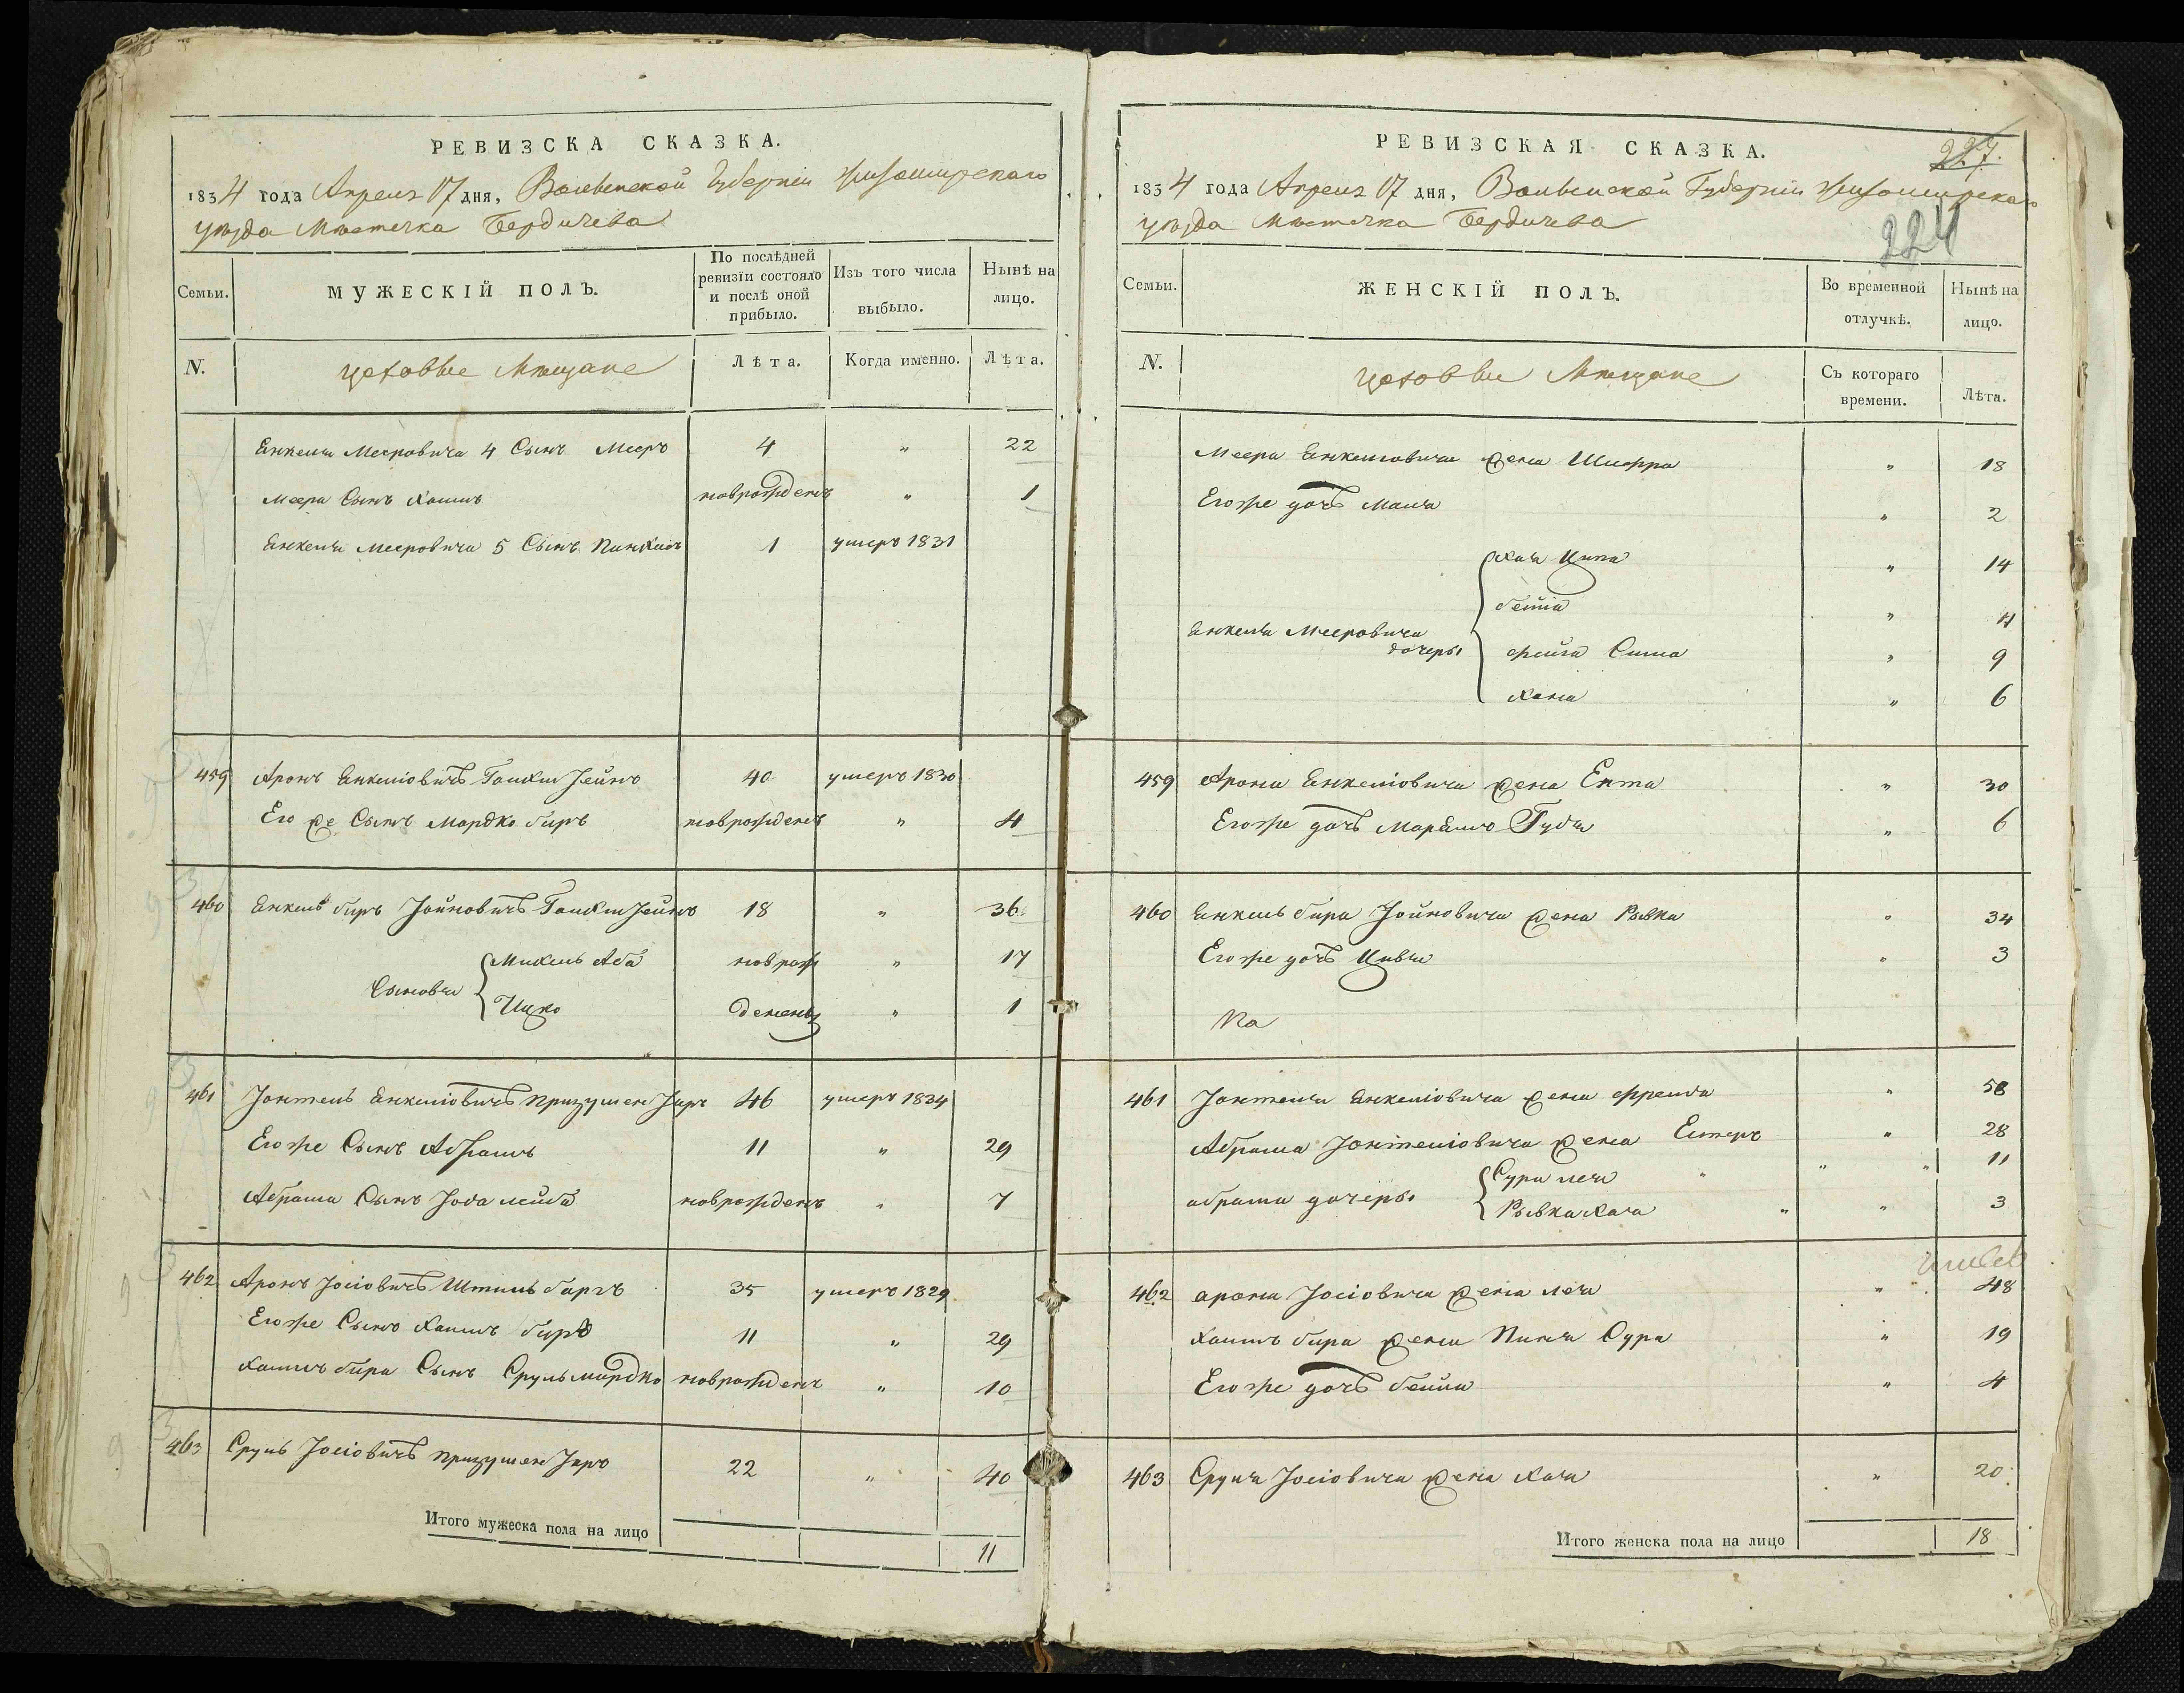 РЕВИЗСКА СКАЗКА.
1834 года Апреля 17 дня, Волынской Губернии Житомирскаго
уѣзда Мѣстечка Бердичева
Семьи.
МУЖЕСКІЙ ПОЛЪ.
По послѣдней ревизіи состояло и послѣ оной прибыло.
Изъ того числа выбыло.
Нынѣ на лицо.
N.
цеховые Мѣщане
Лѣта.
Когда именно.
Лѣта.
Янкеля Мееровича 4 Сынъ Мееръ 4 " 22
Меера Сынъ Хаимъ новрожденъ " 1
Янкеля Мееровича 5 Сынъ Пинхасъ 1 умеръ 1831
459 Аронъ Янкеліовичъ 40 умеръ 1830
Его же Сынъ Мордко беръ новрожденъ " 4
460 Янкель беръ Іойновичъ 18 " 36
Сыновья Михель Аба новрож " 17
Ицко денены " 1
461 Іонтель Янкеліовичъ 46 умеръ 1834
Его же Сынъ Абрамъ 11 " 29
Абрама Сынъ лейба новрожденъ " 7
462 Аронъ Іосіовичъ 35 умеръ 1829
Его же Сынъ Хаимъ беръ 11 " 29
Хаимъ бера Сынъ Срульмордко новрожденъ " 10
463 Сруль Іосіовичъ 22 " 40
Итого мужеска пола на лицо 11
РЕВИЗСКАЯ СКАЗКА.
227.
1834 года Апреля 17 дня, Волынской Губерніи Житомирскаго
уѣзда Мѣстечка Бердичева
224
Семьи.
ЖЕНСКІЙ ПОЛЪ.
Во временной отлучкѣ.
Нынѣ на лицо.
N.
цеховые Мѣщане
Съ котораго времени.
Лѣта.
Меера Янкеловича жена Шифра " 18
Его же дочь Маля " 2
Хая Ципа " 14
бейла " 4
Янкеля Мееровича дочеры фейга Сима " 9
Хана " 6
459 Арона Янкеліовича жена Ента " 30
Его же дочь " 6
460 Янкель бера Іойновича жена Рывка " 34
Его же дочь Цивья " 3
461 Іонтеля Янкеліовича жена фрейда " 58
Абрама Іонтеліовича жена Естеръ " 28
абрама дочеры Сура лея " " 11
Рывка Хая " " 3
462 арона Іосіовича жена лея " 48
Хаимъ бера жена Сура " 19
Его же дочь бейла " 4
463 Сруля Іосіовича жена Хая " 20
Итого женска пола на лицо 18